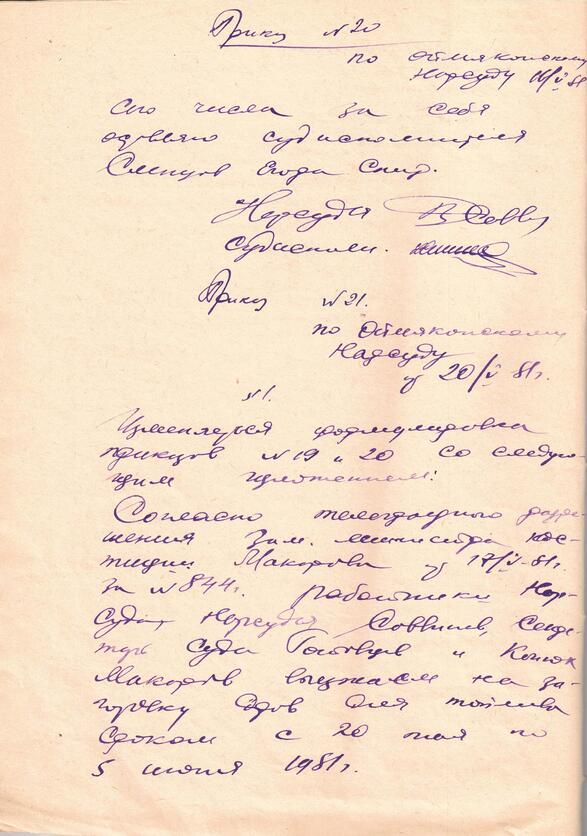 Приказ №20
по Оймяконскому
Нарсуду 18/V 81
Сего числа за себя
оставляю судисполнителя
Слепцов Егора Спир.
Нарсудья В Савви
Судисполн.
Приказ №21.
по Оймяконскому
Нарсуду
от 20/V 81г.
№1.
Изменяется формулировка
приказов №19 и 20 со следую-
щим изложением:
Согласно телеграфного разре-
шения Зам. министра юс-
тиции Макарова от 17/V-81г.
за №844г. работники Нар-
суда Нарсудья Саввинов, Секре-
тарь суда Готовцев и Конюх
Макаров выезжаем на за-
готовку дров для топлива
сроком с 20 мая по
5 июня 1981г.